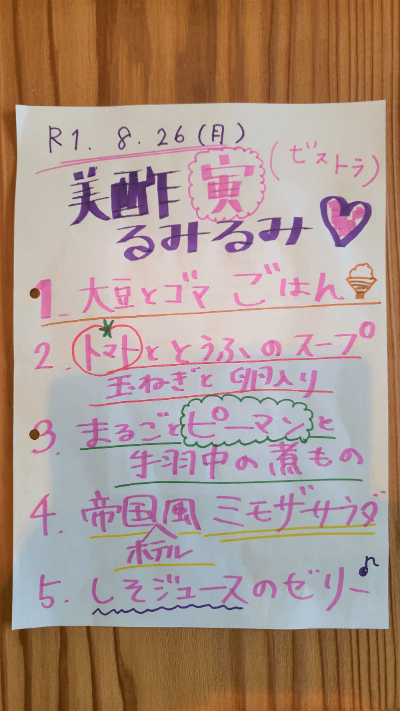 R1. 8. 26(月)
美酢 寅 (ビストラ)
るみるみ
1. 大豆とゴマ ごはん
2. トマトと とうふのスープ
玉ねぎと 卵入り
3. まるごとピーマンと
手羽中の煮もの
4. 帝国風 ミモザサラダ
ホテル
5. しそジュースのゼリー♪